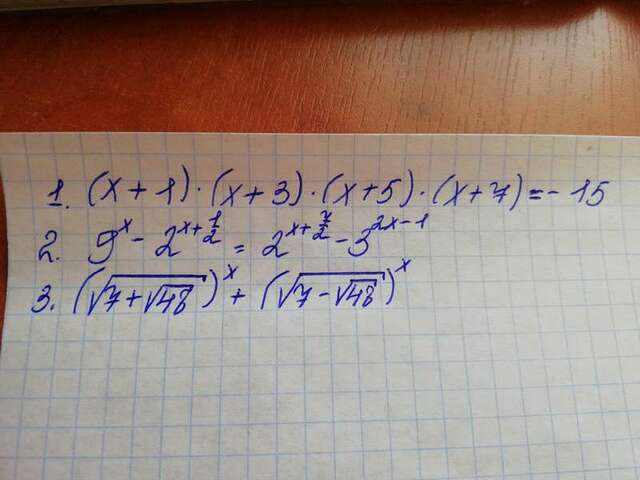 1. (x+1)·(x+3)·(x+5)·(x+7)=-15
2. 9^x - 2^{x+\frac{1}{2}} = 2^{x+\frac{7}{2}} - 3^{2x-1}
3. (\sqrt{7+\sqrt{48}})^x + (\sqrt{7-\sqrt{48}})^x